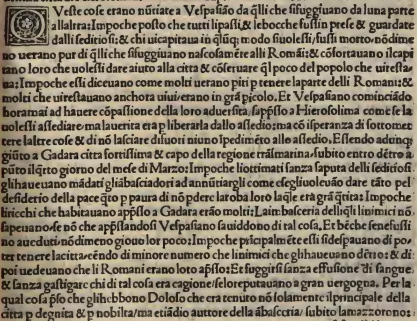 QVeste cose erano nūtiate a Vespasiāo da q̄lli che sifuggiuano da luna parte
allaltra: Impoche posto che tutti lipassi, & lebocche fussin prese & guardate
dalli seditiosi: & chi uicapitaua in q̄lūq; modo siuolessi, fussi morto: nōdime
no uerano pur di q̄lli che sifuggiuano nascosamēte alli Romāi: & cōfortauano ilcapi
tano loro che uolessi dare aiuto alla citta & cōseruare q̄l poco del popolo che uiresta
ua: Impoche essi diceuano come molti uerano piti p tenere laparte delli Romani: &
molti che uirestauano anchora uiui erano in grā picolo. Et Vespasiano cominciādo
horamai ad hauere cōpassione della loro aduersita, sapp̄sso a Hierosolima come se la
uolessi assediare: ma lauerita era p liberarla dallo assedio: ma cō isperanza di sottomet
tere laltre cose & di nō lasciare difuori niuno īpedimēto allo assedio. Essendo adunq;
giūto a Gadara citta fortissima & capo della regione trāsmarina, subito entro dētro a
pūto ilq̄rto giorno del mese di Marzo: Impoche liottimati sanza saputa delli seditiosi
glihaueuano mādati gliābasciadori ad annūtiargli come essi gliuoleuāo dare tāto pel
desiderio della pace q̄to p paura di nō pdere laroba loro laq̄le era grā q̄tita: Impoche
liricchi che habitauano app̄sso a Gadara erāo molti: Laimbasceria dellīq̄li linimici nō
sapeuano: se nō che app̄standosi Vespasiano sauiddono di tal cosa. Et bēche sene fussi
no aueduti: nōdimeno giouo lor poco: Impoche prīcipalmēte essi sidespauano di po
ter tenere lacitta: eēndo di minore numero che linimici che glihaueuano dētro: & di
poi uedeuano che li Romani erano loro ap̄sso: Et fuggirsi sanza effusione di sangue
& sanza gastigare chi di tal cosa era cagione: seloreputauano a gran uergogna. Per la
qual cosa p̄so che glihebbono Doloso che era tenuto nō solamente ilprincipale della
citta p degnita & p nobilta: ma etiādio auttore della ābasceria: subito lamazzorono: